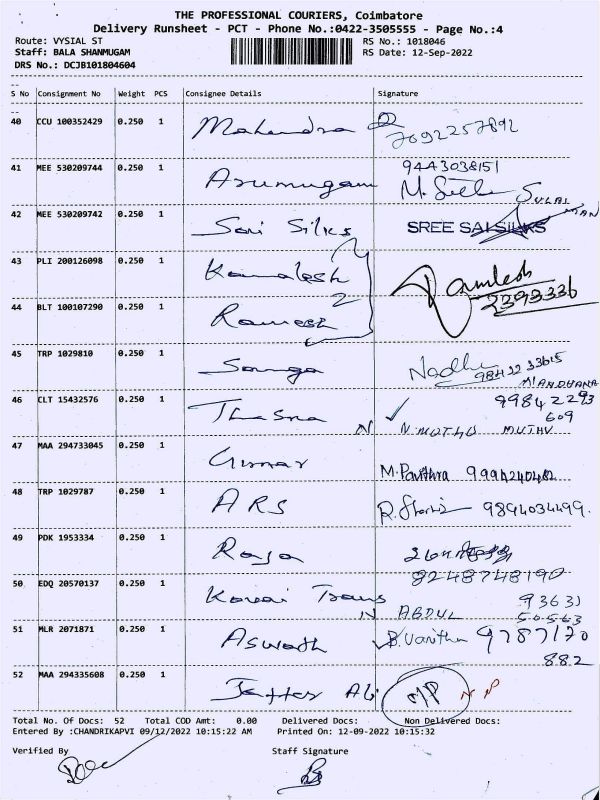 THE PROFESSIONAL COURIERS, Coimbatore
Delivery Runsheet - PCT - Phone No.:0422-3505555 - Page No.:4
Route: VYSIAL ST RS No.: 1018046
Staff: BALA SHANMUGAM RS Date: 12-Sep-2022
DRS No.: DCJB101804604
S No Consignment No Weight PCS Consignee Details Signature
40 CCU 100352429 0.250 1 Mahendra 7092257892
41 MEE 530209744 0.250 1 Arumugam 9443038151
M.
SULAI
MAN
42 MEE 530209742 0.250 1 Sori Silks SREE SAI SILKS
43 PLI 200126098 0.250 1 Kamalesh
2 Kamlesh
2393336
44 BLT 100107290 0.250 1 Ramesh
45 TRP 1029810 0.250 1 Sanga 98422 33615
MIANDHANA
46 CLT 15432576 0.250 1 99842293
609
N N.MUTHU MUTHU
47 MAA 294733045 0.250 1 Gumar M.Pavithra 9994240402
48 TRP 1029787 0.250 1 ARS 9894034499.
49 PDK 1953334 0.250 1 Raja
8248748190
50 EDQ 20570137 0.250 1 Kovai Trans 93631
N ABDUL 50563
51 MLR 2071871 0.250 1 Aswath B.Vanitha 9787170
882
52 MAA 294335608 0.250 1 Jaffer Ali
Total No. Of Docs: 52 Total COD Amt: 0.00 Delivered Docs: Non Delivered Docs:
Entered By :CHANDRIKAPVI 09/12/2022 10:15:22 AM Printed On: 12-09-2022 10:15:32
Verified By Staff Signature